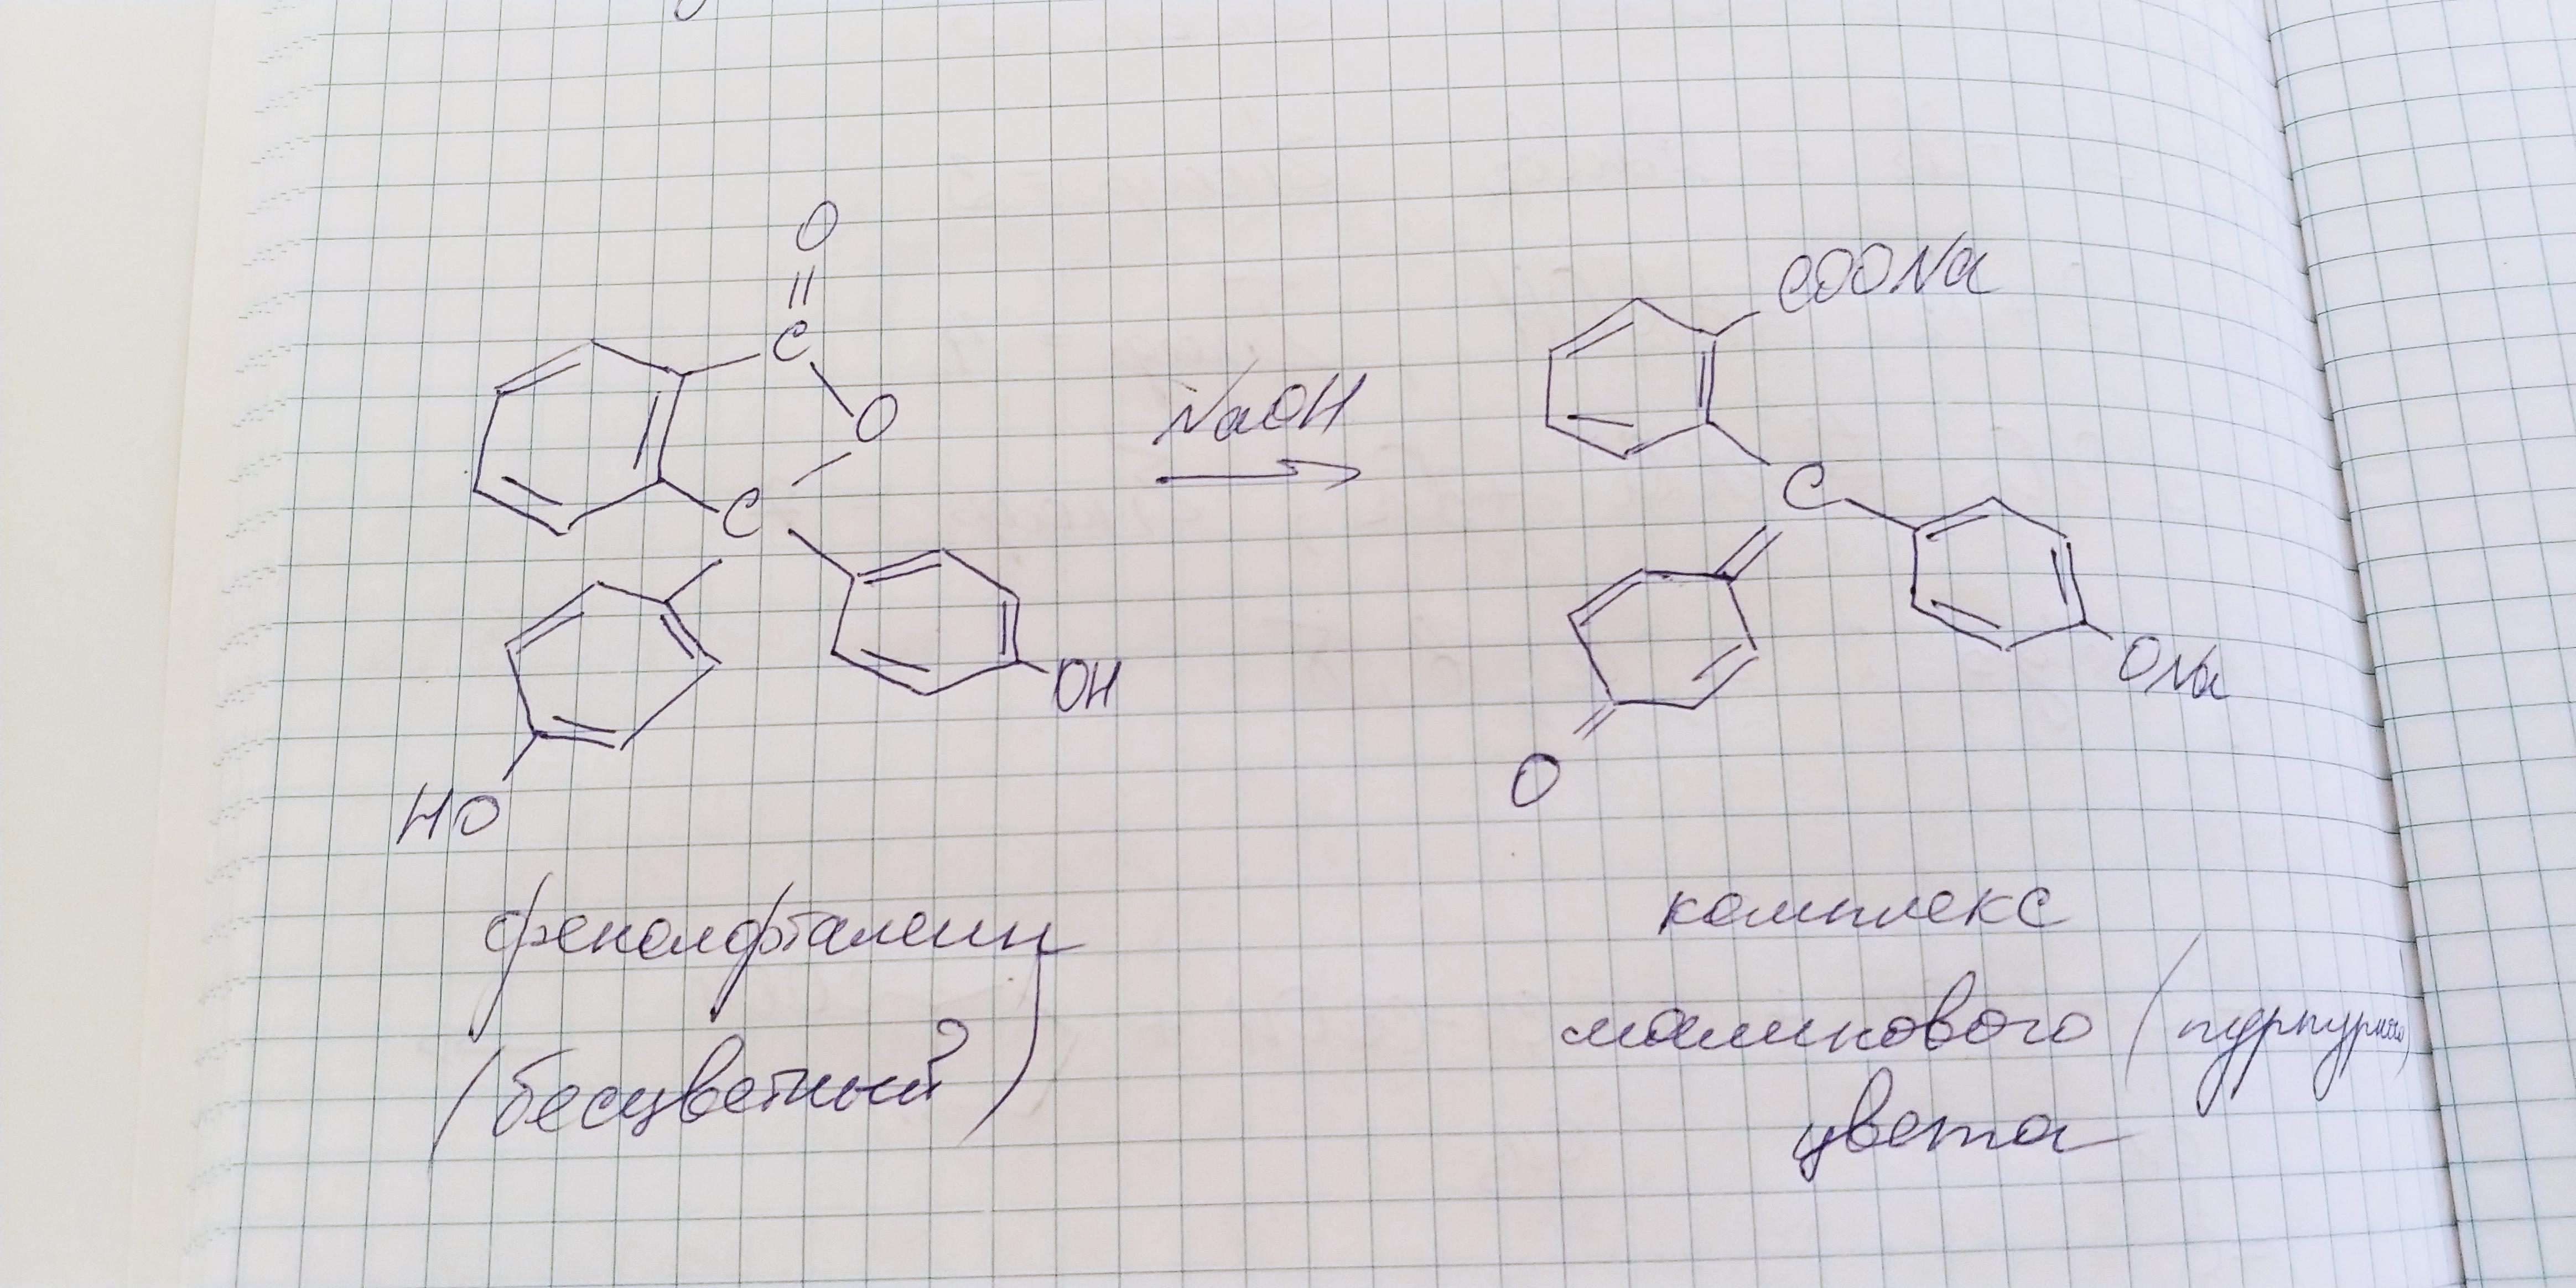 O
C
O
C
OH
HO
NaOH
COONa
C
ONa
O
фенолфталеин
(бесцветный)
комплекс
малинового (пурпурного)
цвета